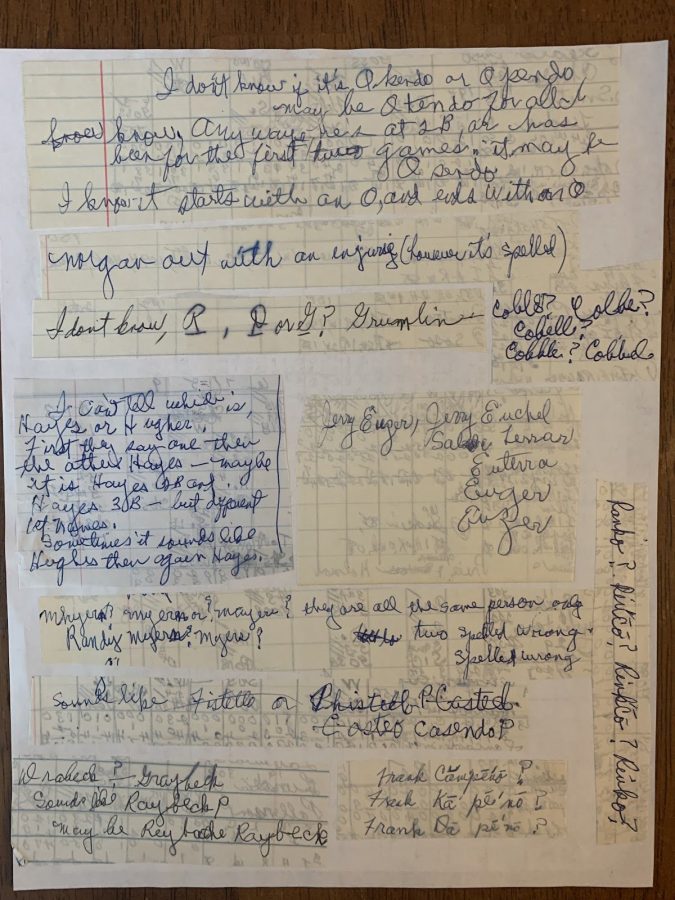 I don't know if it's Okendo or Opendo
may be Otendo for all I
know know, Any way he's at 2B, or has
been for the first two games. it may be
Osendo
I know it starts with an O, and ends with an O
Morgan out with an injury (however it's spelled)
I dont know, P, D or G? Grumlin
Cobbs? Colbe?
Cobell?
Cobble? Cobbed
I can't tell which is,
Hayes or Hugher.
First they say one then
the other Hayes — maybe
it is Hayes and
Hayes 3B — but different
1st names.
Sometimes it sounds like
Hughes then again Hayes.
Jerry Euzer, Jerry Euchel
Terrar
Euterra
Euger
Auzer
Mhyers? Myers or? Mayers? they are all the same person only
Randy Myers? Myers? two spelled wrong
spelled wrong
Sounds like Fistello or Phisted P Casted
Easteo Casendo P
Wrabeck? — Graybeck
Sounds like Raybeck P
may be Reyboche Raybeck
Frank Cămpēkō?
Frank Kā pē'nō?
Frank Dā pē'nō?
Rinkō? Rinkō?